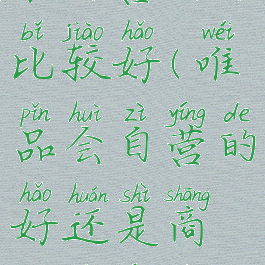 bǐ jiào hǎo wéi
比较好(唯
pǐn huì zì yíng de
品会自营的
hǎo huán shì shāng
好还是商